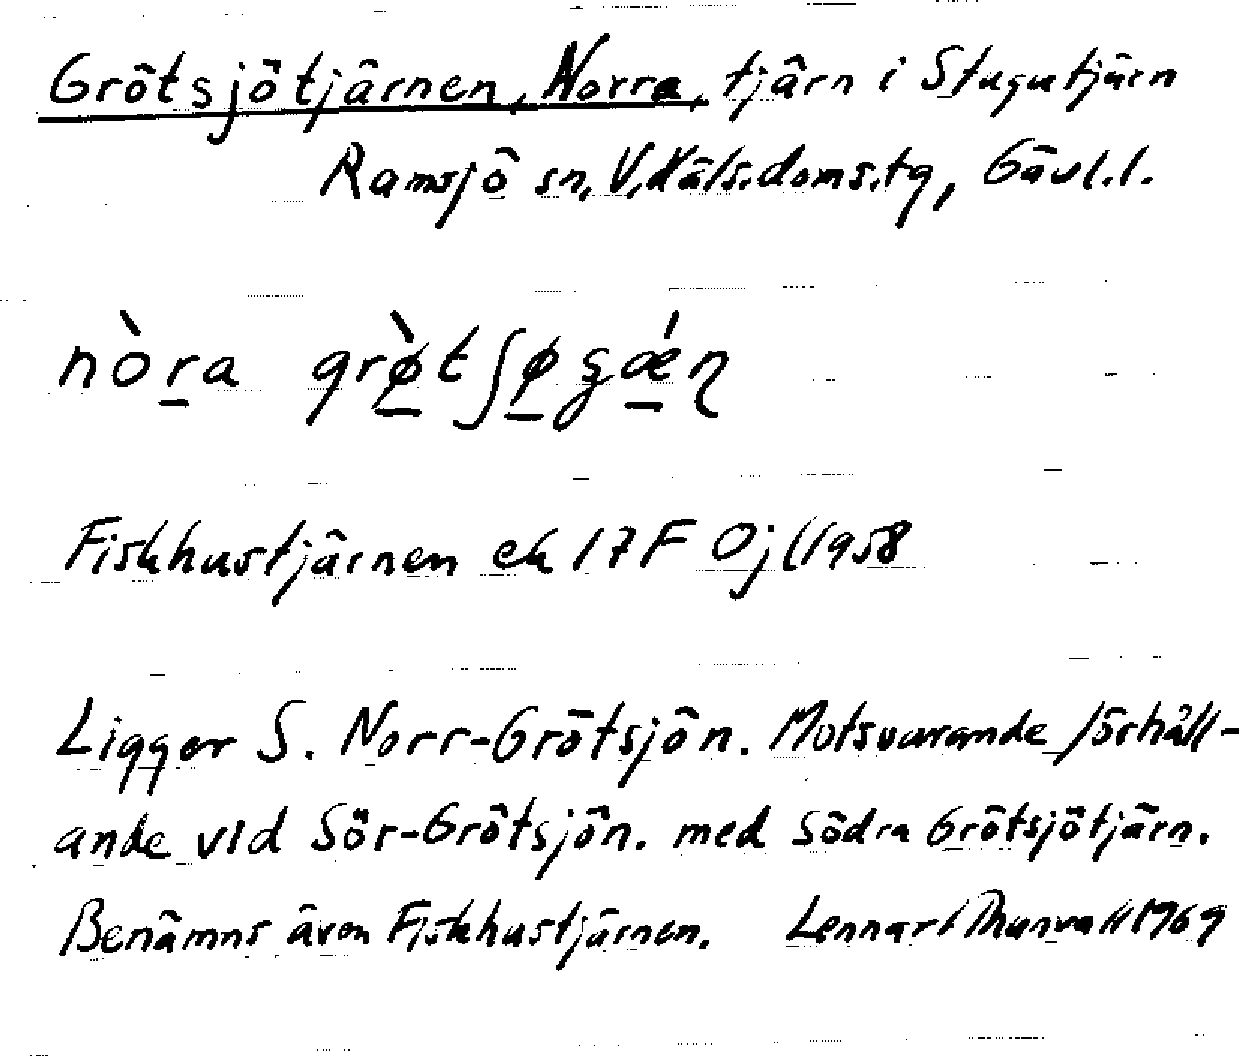 Grötsjötjärnen, Norra, tjärn i Stugutjärn
Ramsjö sn, V. Häls. doms. tg, Gävl. l.
nòra grø̀tʃøʒǽɳ
Fiskhustjärnen ek 17F 0j 1958
Ligger S. Norr-Grötsjön. Motsvarande förhåll-
ande vid Sör-Grötsjön. med Södra Grötsjötjärn.
Benämns även Fiskhustjärnen. Lennart Thunvall 1969